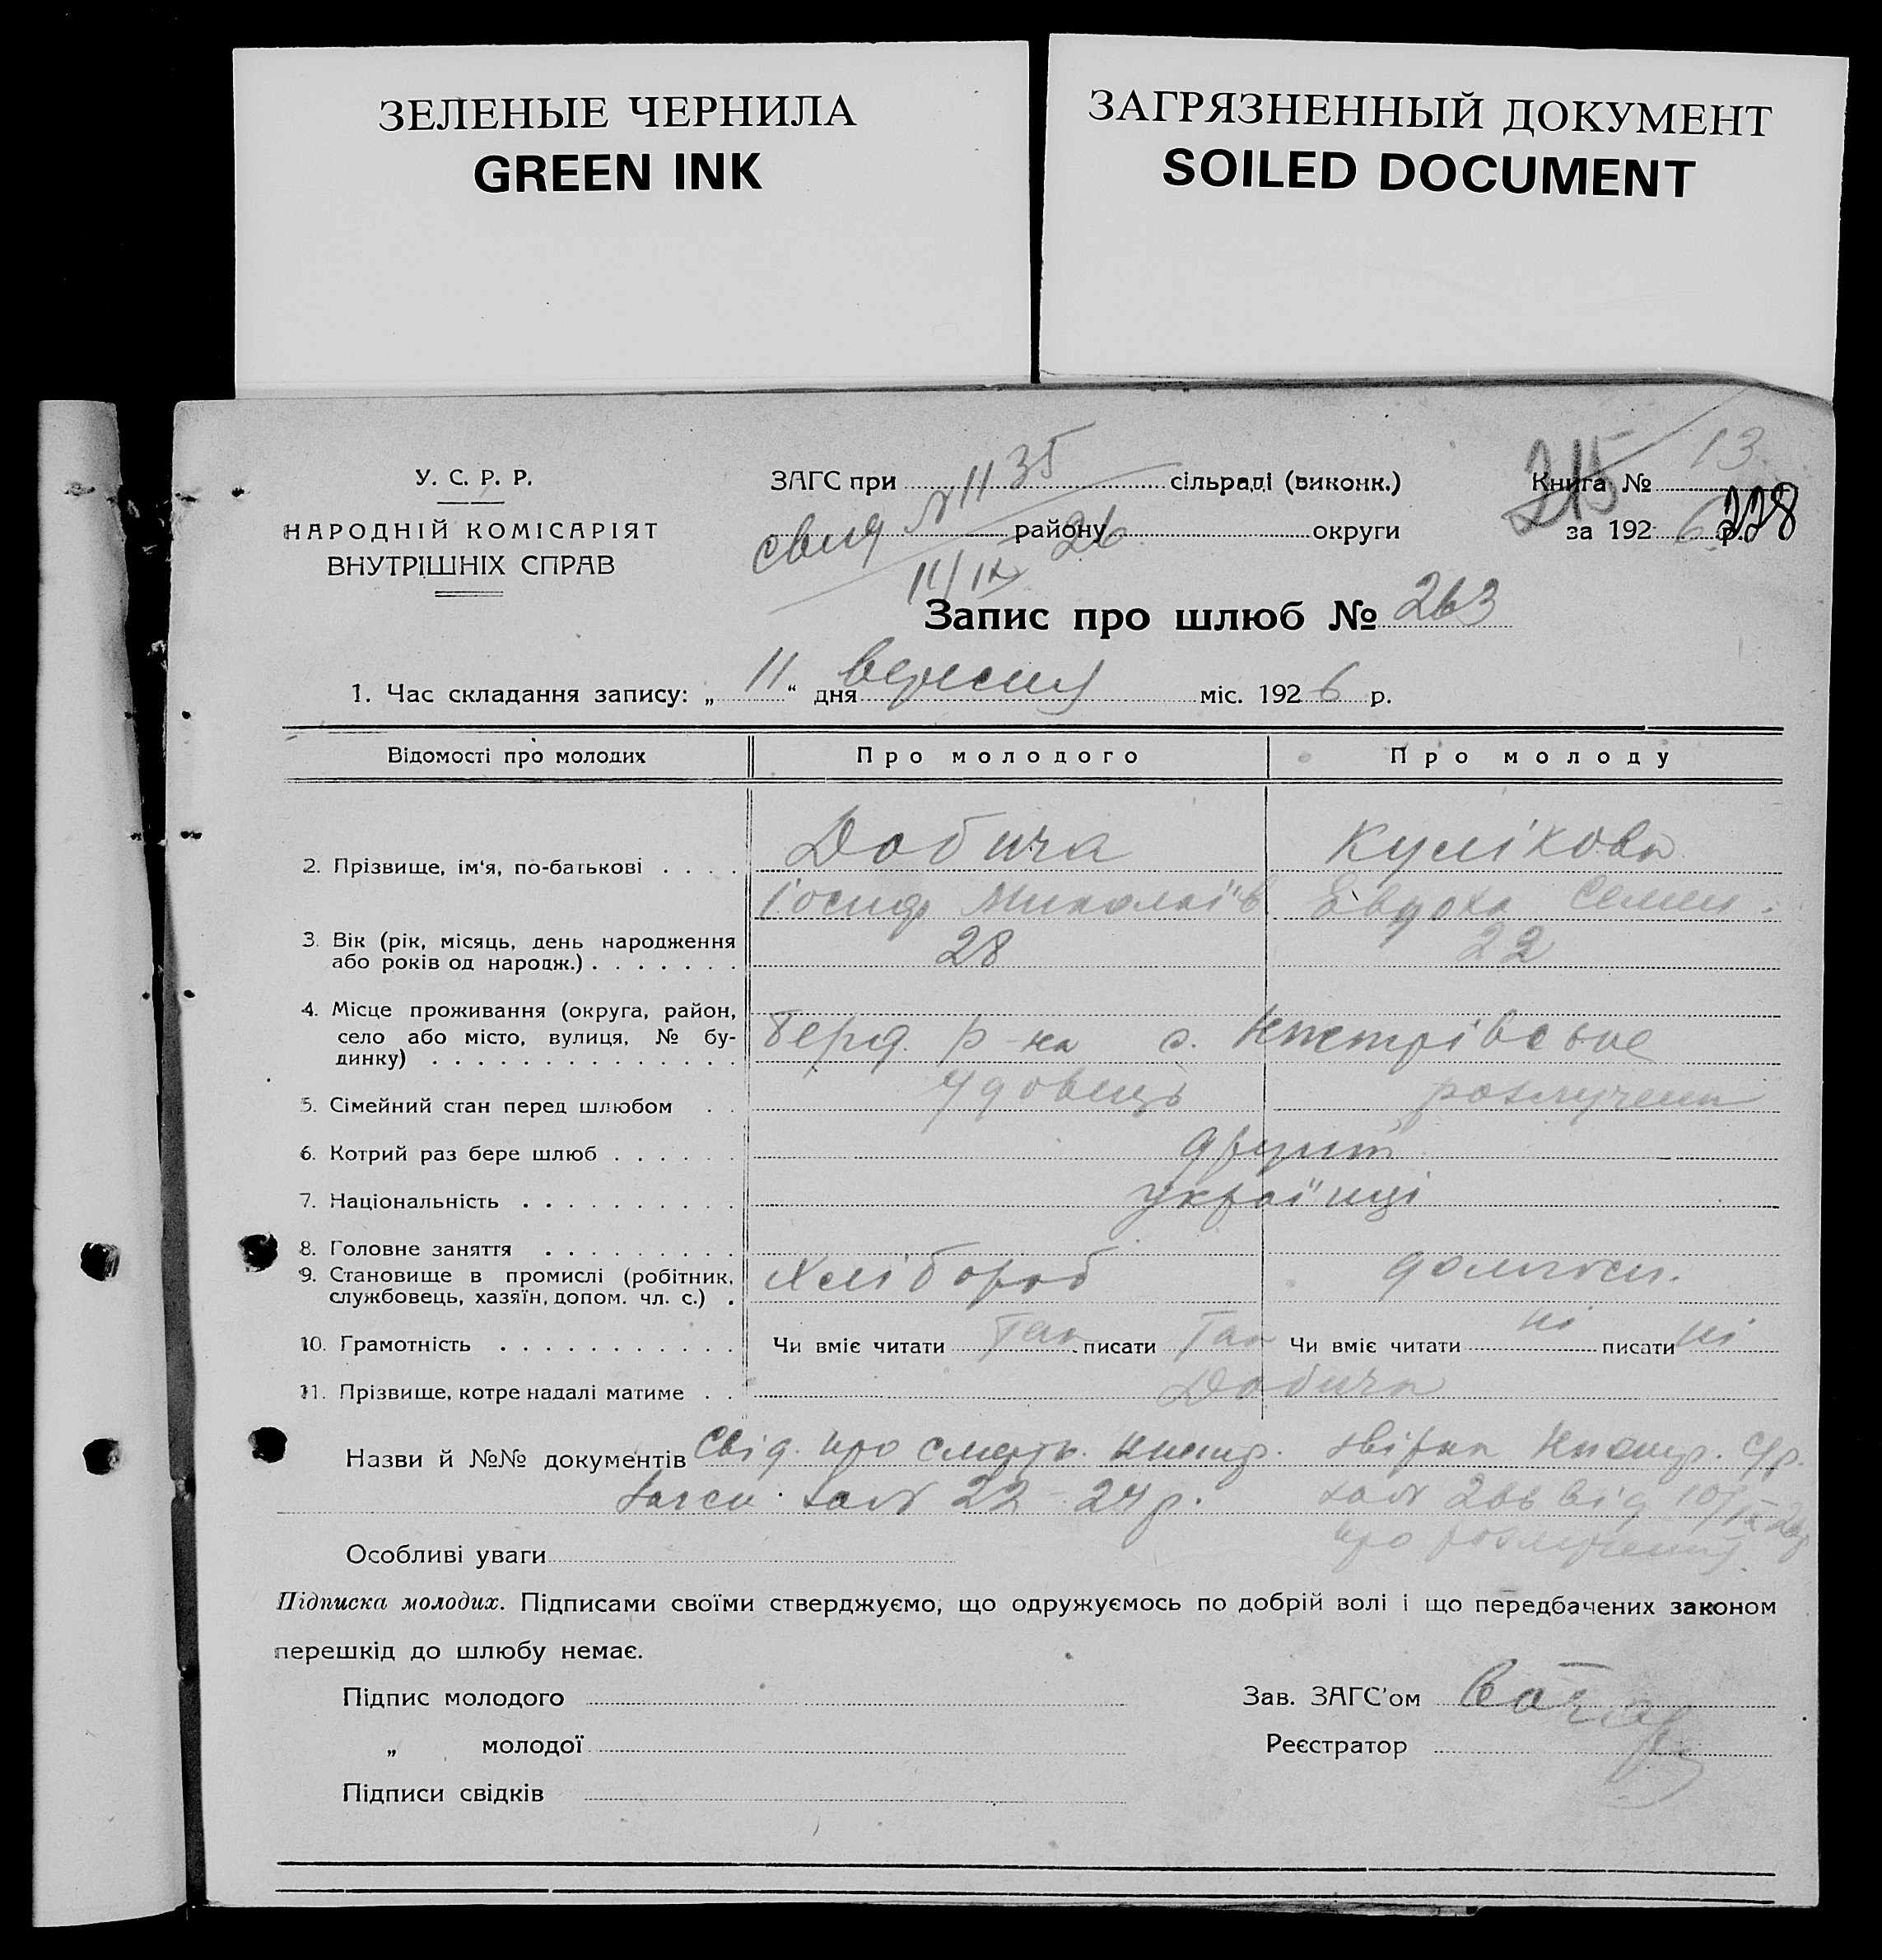 ЗЕЛЕНЫЕ ЧЕРНИЛА
GREEN INK
ЗАГРЯЗНЕННЫЙ ДОКУМЕНТ
SOILED DOCUMENT
У. С. Р. Р.
НАРОДНІЙ КОМІСАРІЯТ
ВНУТРІШНІХ СПРАВ
ЗАГС при № 1135 сільраді (виконк.)
району 26 округи
11/IX
215 13
Книга №
за 192 6 р. 228
Запис про шлюб № 263
1. Час складання запису: „ 11 “ дня вересня міс. 192 6 р.
Відомості про молодих Про молодого Про молоду
2. Прізвище, ім'я, по-батькові . . . . Добича Кулікова
Іосип Миколаїв. Евдоха Семен.
3. Вік (рік, місяць, день народження
або років од народж.) . . . . . . . 28 22
4. Місце проживання (округа, район,
село або місто, вулиця, № бу-
динку) . . . . . . . . . . . . . Берд. р-на с.
5. Сімейний стан перед шлюбом . . удовець розлучена
6. Котрий раз бере шлюб . . . . . . другий
7. Національність . . . . . . . . . . українці
8. Головне заняття . . . . . . . . .
9. Становище в промислі (робітник,
службовець, хазяїн, допом. чл. с.) . Хлібороб домогосп.
10. Грамотність . . . . . . . . . . . Чи вміє читати Так писати Так Чи вміє читати ні писати ні
11. Прізвище, котре надалі матиме . . Добича
Назви й №№ документів Свід. про смерть звірка с/р.
Загси за № 22 24 р. за № 266 від 10/IX-26р
про розлучення.
Особливі уваги
Підписка молодих. Підписами своїми стверджуємо, що одружуємось по добрій волі і що передбачених законом
перешкід до шлюбу немає.
Підпис молодого Зав. ЗАГС'ом
„ молодої Реєстратор
Підписи свідків